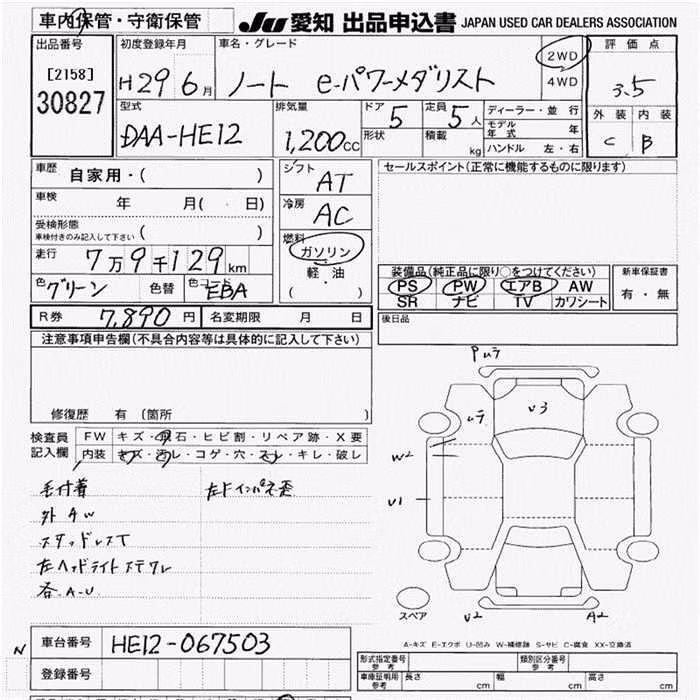 車内保管・守衛保管
JU 愛知 出品申込書 JAPAN USED CAR DEALERS ASSOCIATION
出品番号
[2158]
30827
初度登録年月
H29 6月
車名・グレード
ノート e-パワーメダリスト
2WD
4WD
評価点
3.5
外装 内装
C B
型式
DAA-HE12
排気量
1,200cc
ドア 5
形状
定員 5人
積載 kg
ディーラー・並行
モデル年式 年
ハンドル 左・右
車歴 自家用・( )
車検 年 月( 日)
受検形態
車検付きのみ記入して下さい ( )
走行 7万9千129km
色 グリーン 色替 色コード EBA
シフト AT
冷房 AC
燃料
ガソリン
軽油
( ・ )
セールスポイント(正常に機能するものに限ります)
装備品(純正品に限り○をつけてください)
PS PW エアB AW
SR ナビ TV カワシート
新車保証書
有・無
R券 7,890円 名変期限 月 日
後日品
注意事項申告欄(不具合内容等は具体的に記入して下さい)
修復歴 有(箇所 )
検査員
記入欄
FW キズ・飛石・ヒビ割・リペア跡・X要
内装 キズ・汚レ・コゲ・穴・スレ・キレ・破レ
毛付着
外AW
スタッドレスT
左ヘッドライトステクレ
各A-U
W2
U1
U3
U2
A2
スペア
A-キズ E-エクボ U-凹み W-補修跡 S-サビ C-腐食 XX-交換済
車台番号 HE12-067503
登録番号
N
形式指定番号 参考
類別区分番号 参考
車庫証明用 参考 長さ cm 幅 cm 高さ cm